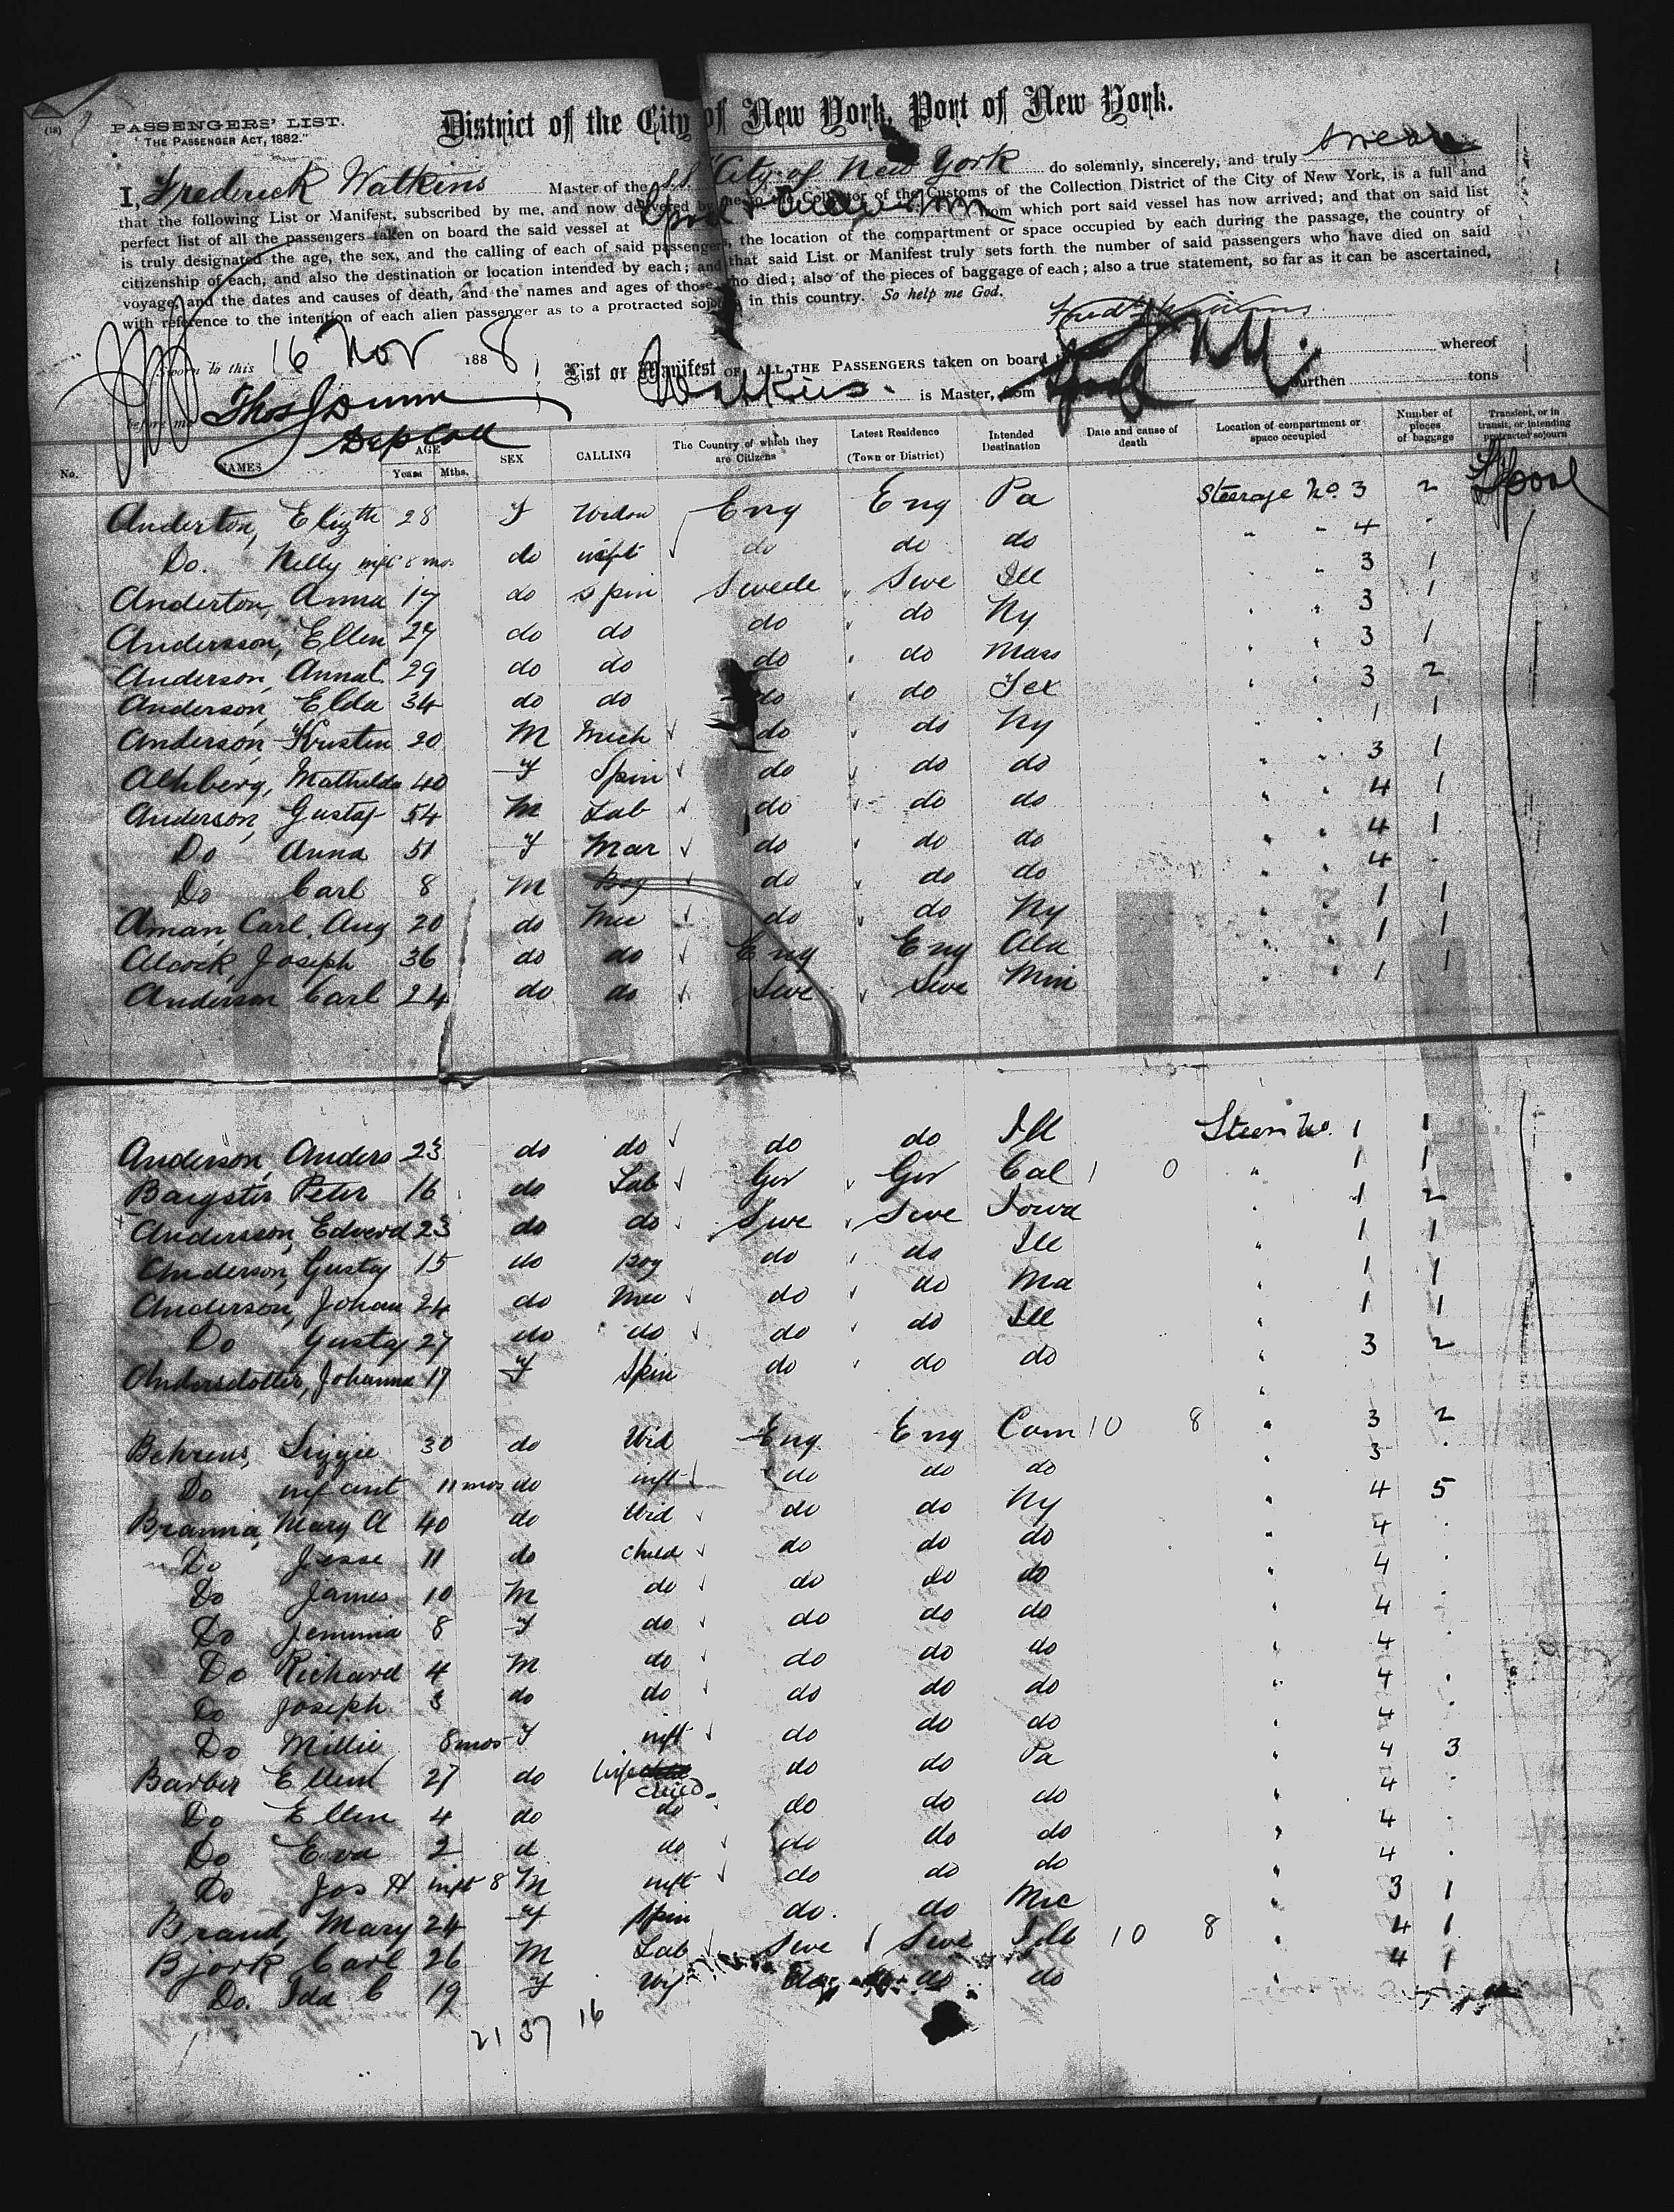 (18)
PASSENGERS' LIST.
"THE PASSENGER ACT, 1882."
District of the City of New York, Port of New York.
I, Frederick Watkins Master of the S.S. "City of New York do solemnly, sincerely, and truly swear
that the following List or Manifest, subscribed by me, and now delivered by me to the Collector of the Customs of the Collection District of the City of New York, is a full and
perfect list of all the passengers taken on board the said vessel at from which port said vessel has now arrived; and that on said list
is truly designated the age, the sex, and the calling of each of said passengers, the location of the compartment or space occupied by each during the passage, the country of
citizenship of each, and also the destination or location intended by each; and that said List or Manifest truly sets forth the number of said passengers who have died on said
voyage, and the dates and causes of death, and the names and ages of those who died; also of the pieces of baggage of each; also a true statement, so far as it can be ascertained,
with reference to the intention of each alien passenger as to a protracted sojourn in this country. So help me God.
Sworn to this 16 Nov 1888
before me
List or Manifest OF ALL THE PASSENGERS taken on board whereof
Watkins. is Master, from burthen tons
No. NAMES AGE Years Mths. SEX CALLING The Country of which they are Citizens Latest Residence (Town or District) Intended Destination Date and cause of death Location of compartment or space occupied Number of pieces of baggage Transient, or in transit, or intending protracted sojourn
Anderton, Elizth 28 F Widow Eng Eng Pa Steerage No. 3 2 Lpool
Do. Nelly inft 8 mo. do inft do do do " " 4
Anderton, Anna 17 do Spin Swede " Swe Ill " " 3 1
Andersson, Ellen 27 do do do " do Ny " " 3 1
Anderson, Anna C. 29 do do do " do Mass " " 3 1
Anderson, Elda 34 do do do " do Tex " " 3 2
Anderson, Kristen 20 M Mech do do Ny " 1 1
Ahlberg, Mathilda 40 F Spin do do do " " 3 1
Anderson, Gustaf 54 M Lab do do do " " 4 1
Do Anna 51 F Mar do do do " " 4 1
Do Carl 8 M Boy do do do " " 4
Aman, Carl. Aug 20 do Mec do do Ny " " 1 1
Alcock, Joseph 36 do do Eng Eng Ala " " 1 1
Anderson Carl 24 do do Swe Swe Min " " 1 1
Anderson, Anders 23 do do do do Ill Steer No. 1 1
Peter 16 do Lab Ger Ger Cal 1 0 " 1 1
Andersson, Edverd 23 do do Swe Swe Iowa " 1 2
Anderson, Gustaf 15 do Boy do do Ill " 1 1
Anderson, Johan 24 do Mec do do Ma " 1 1
Do Gustaf 27 do do do do Ill " 1 1
Andersdotter, Johanna 17 F Spin do do do " 3 2
Behrens, Lizzie 30 do Wid Eng Eng 10 8 " 3 2
Do infant 11 mos do inft do do do " 3
Mary A 40 do Wid do do Ny " 4 5
Do Jesse 11 do child do do do " 4
Do James 10 M do do do do " 4
Do Jemima 8 F do do do do " 4
Do Richard 4 M do do do do " 4
Do Joseph 3 do do do do do " 4
Do Millie 8 mos F inft do do do " 4
Barber Ellen 27 do Wife do do Pa " 4 3
child
Do Ellen 4 do do do do do " 4
Do Eva 2 d do do do do " 4
Do Jos H inft 8 M inft do do do " 4
Brand, Mary 24 F Spin do. do Mic " 3 1
Bjork Carl 26 M Lab Swe Swe Ill 10 8 " 4 1
Do. Ida C 19 F Wif do do do " 4 1
21 37 16